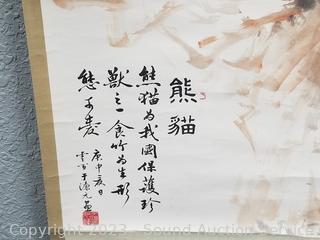 熊貓
熊貓為我國保護珍
獸之一食竹為生形
態可愛
庚申夏日
Copyright 2023 - Sound Auction Service